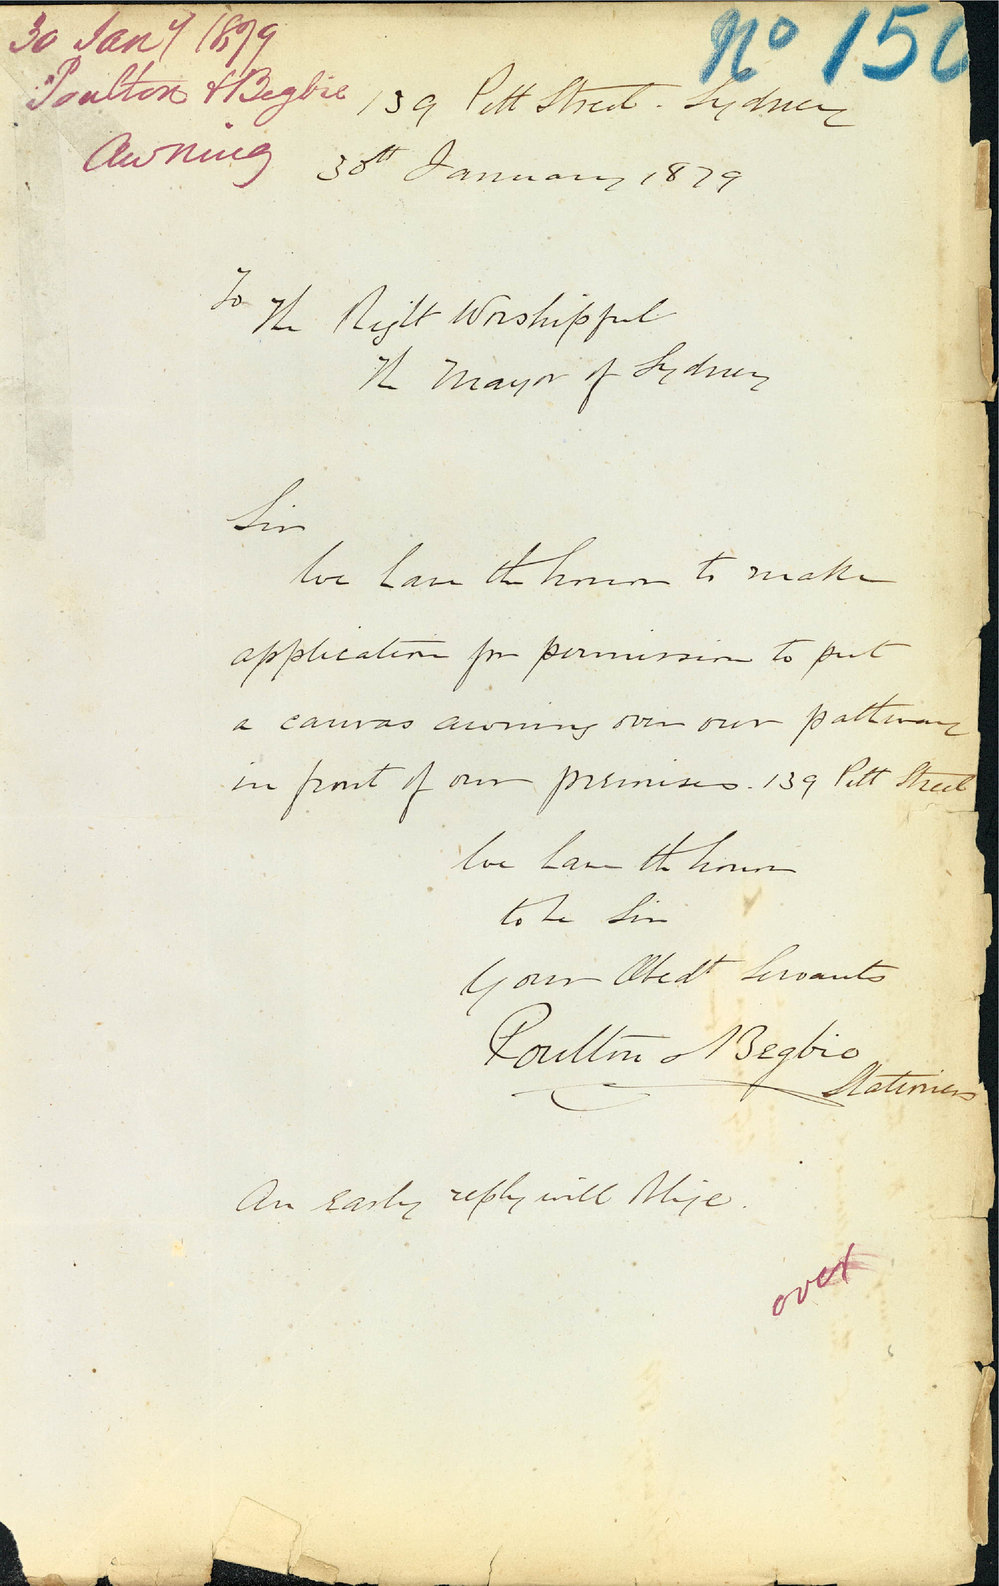 30 Jany 1879
Poulton & Begbie
Awning
No 150
139 Pitt Street. Sydney
30th January 1879
To
The Right Worshipful
The Mayor of Sydney
Sir
We have the honor to make
application for permission to put
a canvas awning over our pathway
in front of our premises. 139 Pitt Street
We have the honor
to be Sir
Your Obedt Servants
Poulton & Begbie
Stationers
An early reply will oblige.
over